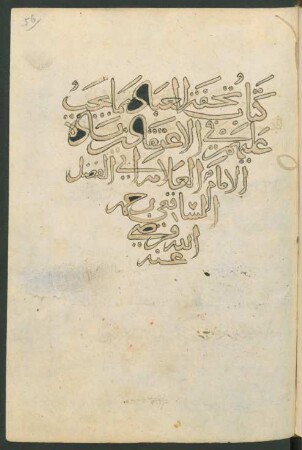 56
كتاب تحفة العباد بما يجب
عليهم في الاعتقاد
الامام العلامة ابي الفضل
الشافعي رحمه
الله ورضي
عنه